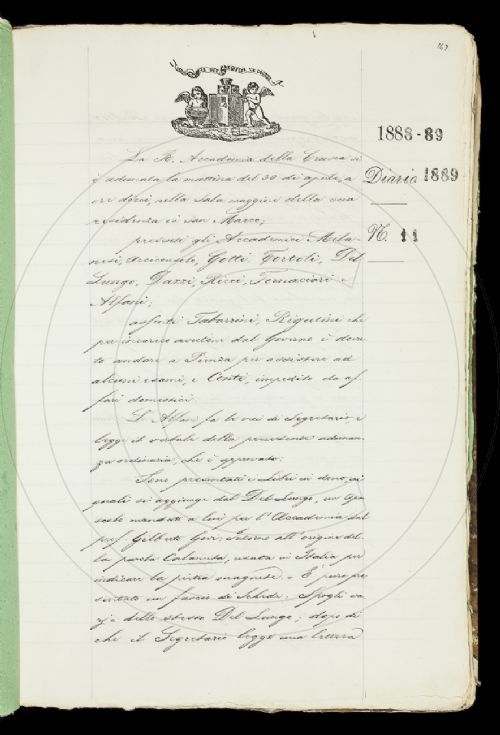 147
1888-89
Diario 1889
N. 11
La R. Accademia della Crusca si
è adunata la mattina del 30 di aprile, a
ore dieci, nella sala maggiore della sua
residenza in San Marco;
presenti gli Accademici Mila-
nesi, Arciconsolo, Gotti, Tortoli, Del
Lungo, Dazzi, Ricci, Tomaciori e
Alfani;
assenti Tabarrini, Rigutini che
per incarico avutone dal Governo è dovu-
to andare a Firenze per assistere ad
alcuni esami, e Conti, impedito da af-
fari domestici.
L'Alfani fa le veci di Segretario, e
legge il verbale della precedente adunan-
za ordinaria, che è approvato.
Sono presentati i Libri in dono, ai
quali si aggiunge dal Del Lungo, un opu-
scolo mandato a lui per l'Accademia dal
prof. Gilberto Govi; Intorno all'origine del-
la parola Calamita, usata in Italia per
indicare la pietra magnese. E pure pre-
sentato un fascio di schede, Spogli va-
rj dello stesso Del Lungo; dopo di
che il Segretario legge una lettera